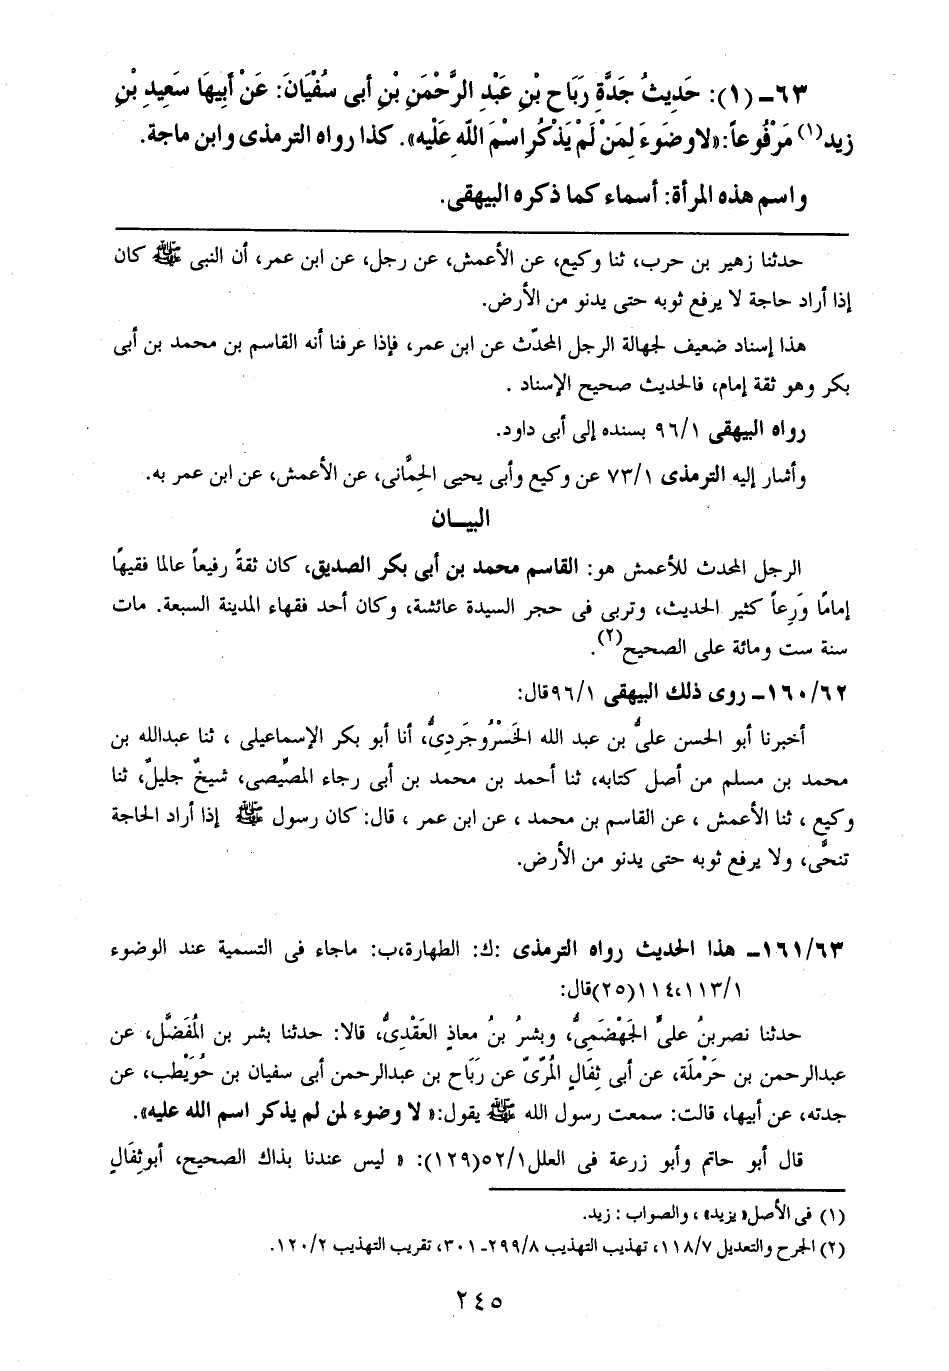 ٦٣ـ (١): حَدِيثُ جَدَّةِ رَبَاحِ بْنِ عَبْدِ الرَّحْمَنِ بْنِ أبى سُفْيَانَ: عَنْ أبِيهَا سَعِيدِ بْنِ
زيد(١) مَرْفُوعاً: «لا وضُوءَ لِمَنْ لَمْ يَذْكُرِ اسْمَ اللهِ عَلَيْه». كذا رواه الترمذى وابن ماجة.
واسم هذه المرأة: أسماء كما ذكره البيهقى.
حدثنا زهير بن حرب، ثنا وكيع، عن الأعمش، عن رجل، عن ابن عمر، أن النبى ﷺ كان
إذا أراد حاجة لا يرفع ثوبه حتى يدنو من الأرض.
هذا إسناد ضعيف لجهالة الرجل المحدّث عن ابن عمر، فإذا عرفنا أنه القاسم بن محمد بن أبى
بكر وهو ثقة إمام، فالحديث صحيح الإسناد .
رواه البيهقى ٩٦/١ بسنده إلى أبى داود.
وأشار إليه الترمذى ٧٣/١ عن وكيع وأبى يحيى الحِمَّانى، عن الأعمش، عن ابن عمر به.
البيـــان
الرجل المحدث للأعمش هو: القاسم محمد بن أبى بكر الصديق، كان ثقةً رفيعاً عالما فقيهًا
إمامًا وَرِعاً كثير الحديث، وتربى فى حجر السيدة عائشة، وكان أحد فقهاء المدينة السبعة. مات
سنة ست ومائة على الصحيح(٢).
١٦٠/٦٢ـ روى ذلك البيهقى ٩٦/١قال:
أخبرنا أبو الحسن علىُّ بن عبد الله الخَسْرُوجَردِىُّ، أنا أبو بكر الإسماعيلى ، ثنا عبدالله بن
محمد بن مسلم من أصل كتابه، ثنا أحمد بن محمد بن أبى رجاء المصِّيصى، شيخٌ جليلٌ، ثنا
وكيع ، ثنا الأعمش ، عن القاسم بن محمد ، عن ابن عمر ، قال: كان رسول ﷺ إذا أراد الحاجة
تنحَّى، ولا يرفع ثوبه حتى يدنو من الأرض.
١٦١/٦٣ـ هذا الحديث رواه الترمذى :ك: الطهارة،ب: ماجاء فى التسمية عند الوضوء
١١٤،١١٣/١(٢٥)قال:
حدثنا نصربنُ علىٍّ الجَهْضَمِىُّ، وبشرُ بنُ معاذٍ العَقْدِىُّ، قالا: حدثنا بشر بن المُفَضَّل، عن
عبدالرحمن بن حَرْملَة، عن أبى ثِفَالٍ المُرِّىّ عن رَبَاح بن عبدالرحمن أبى سفيان بن حُوَيْطب، عن
جدته، عن أبيها، قالت: سمعت رسول الله ﷺ يقول:« لا وضوء لمن لم يذكر اسم الله عليه».
قال أبو حاتم وأبو زرعة فى العلل٥٢/١(١٢٩): « ليس عندنا بذاك الصحيح، أبوثِفَالٍ
(١) فى الأصل«يزيد» ، والصواب : زيد.
(٢) الجرح والتعديل ١١٨/٧، تهذيب التهذيب ٢٩٩/٨ـ ٣٠١، تقريب التهذيب ١٢٠/٢.
٢٤٥